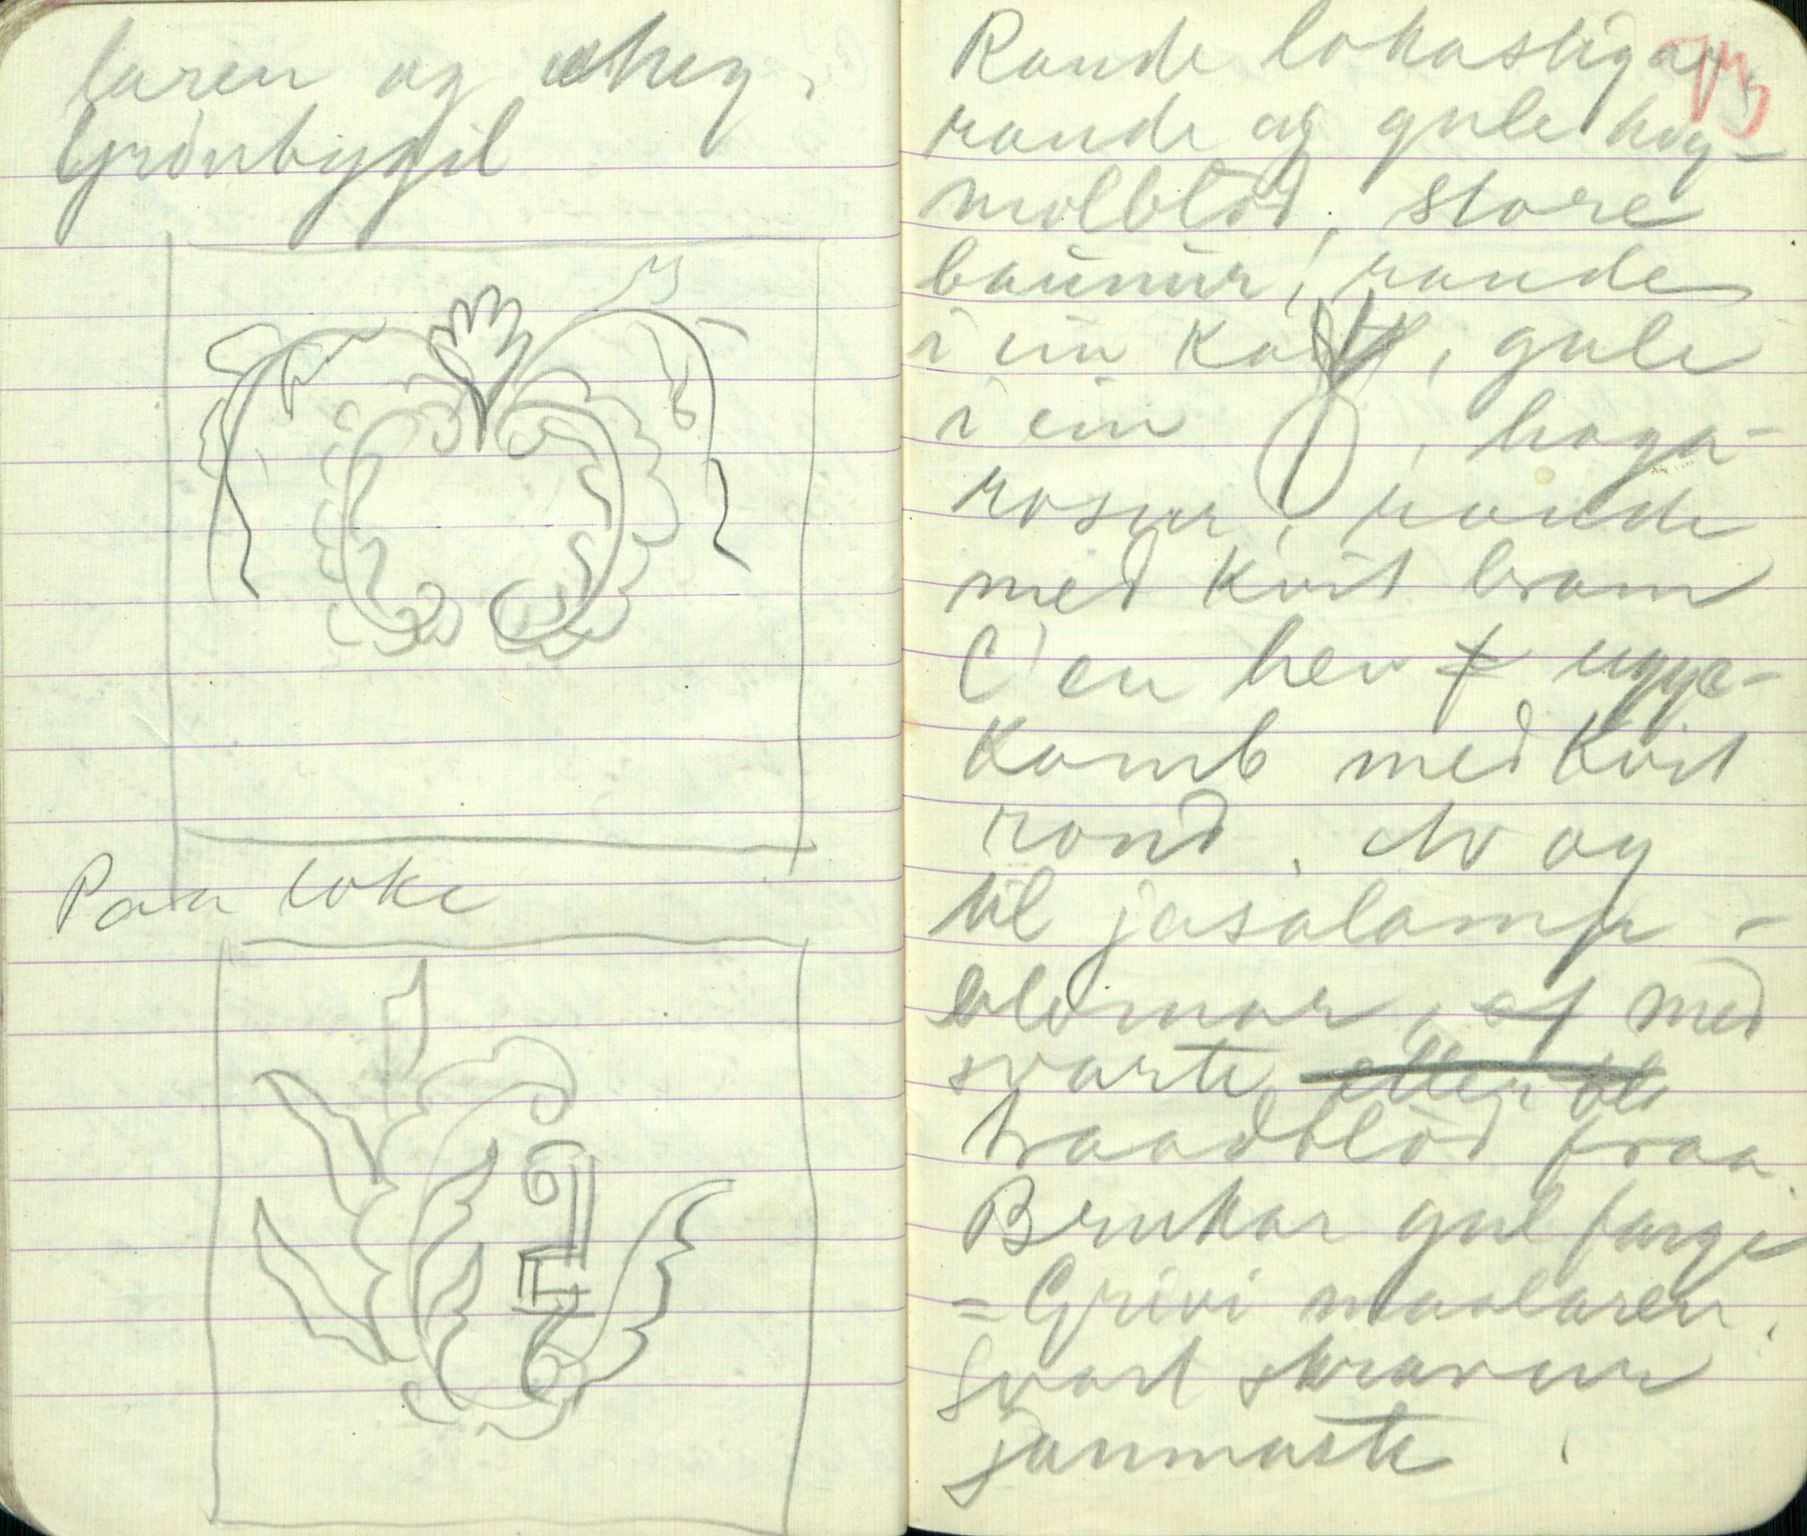 laren og
Grønbygil
Paa loke
Raude lokastigar,
raude og gule høg-
molblod, store
baunur, raude
i ein kant, gule
i ein , haga-
rosur, raude
med kvit bram
C'en hev ugga-
kamb med kvit
rand. Av og
til
blomar, med
svarte
traadblod fraa.
Brukar gul farge
= Grivi maalaren.
Svart skravur
jammaste